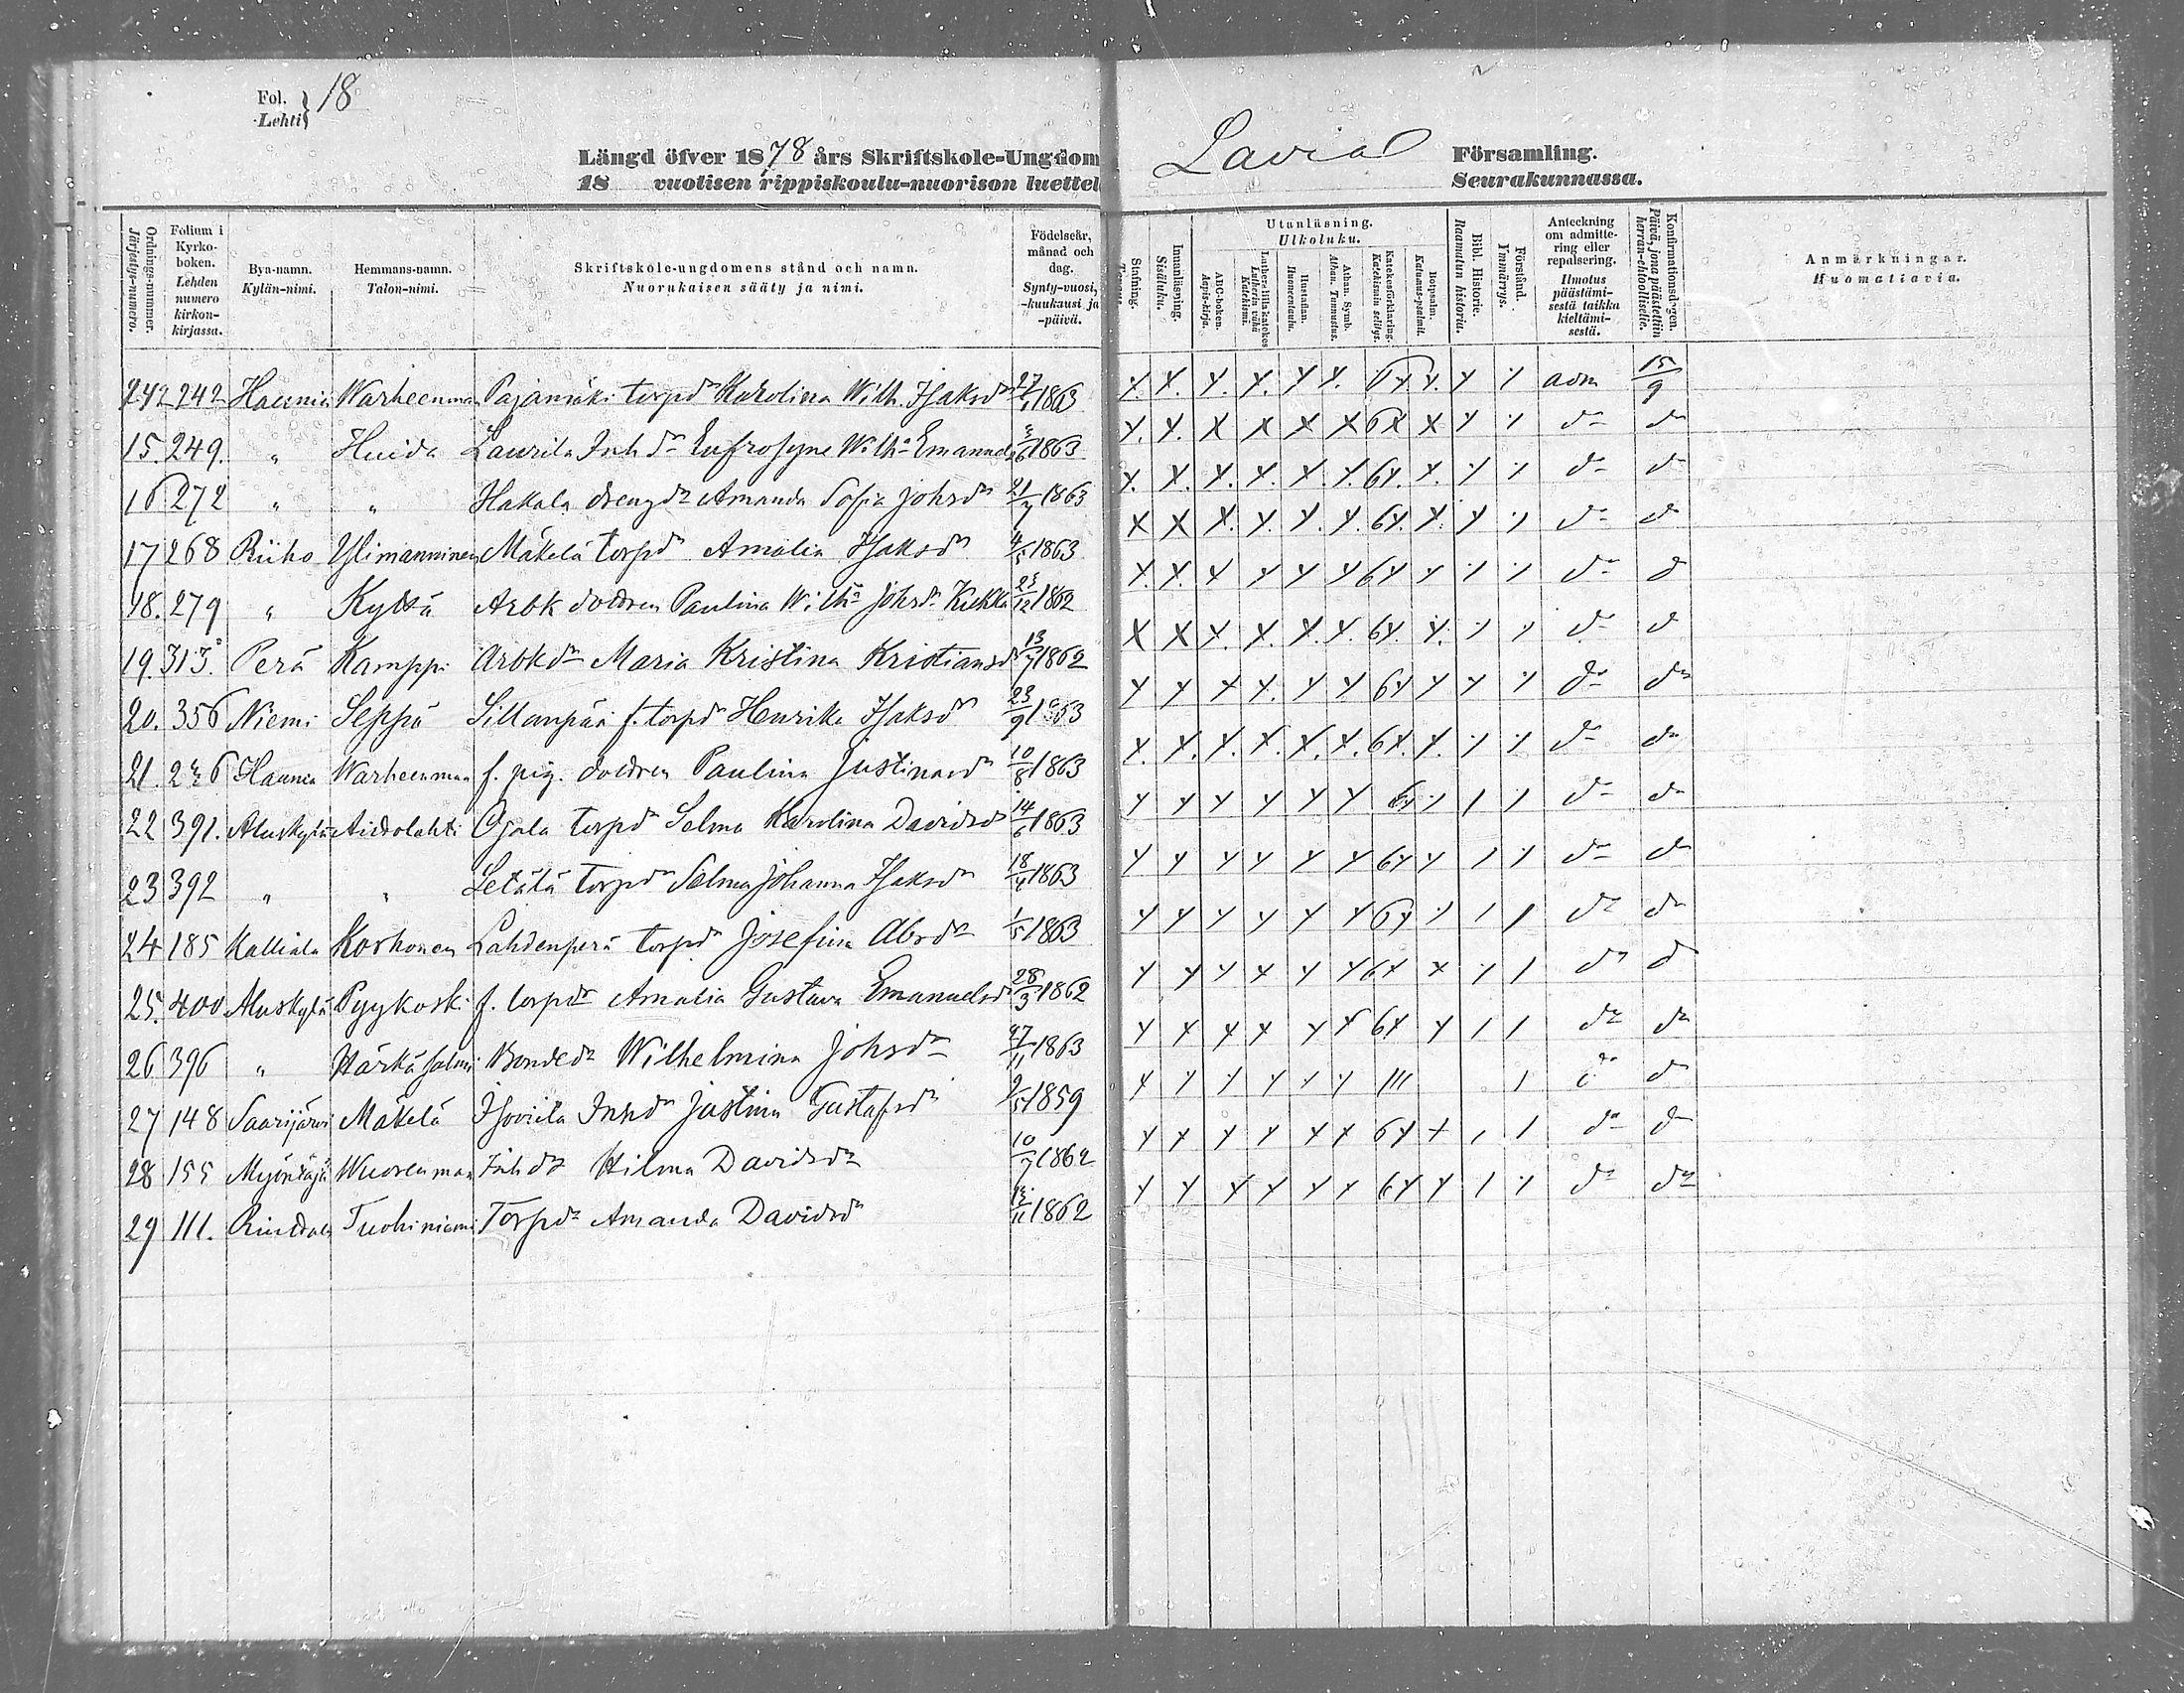 Fol. 18
Lehti
Längd öfver 1878 års Skriftskole-Ungdom
18 vuotisen rippiskoulu-nuorison luettel
Lavia Församling.
Seurakunnassa.
Ordnings-nummer. Järjestys-numero.
Folium i Kyrko-boken. Lehden numero kirkon-kirjassa.
Byn-namn. Kylän-nimi.
Hemmans-namn. Talon-nimi.
Skriftskole-ungdomens stånd och namn. Nuorukaisen sääty ja nimi.
Födelseår, månad och dag. Synty-vuosi, -kuukausi ja -päivä.
Stafning.
Innanläsning. Sisäluku.
Utanläsning. Ulkoluku.
ABC-boken. Aapis-kirja.
Luthers lilla katekes Lutherin vähä Katekismi.
Hustaflan. Huoneentaulu.
Athan. Symb. Athan. Tunnustus.
Katekesförklaring. Katekismin selitys.
Botpsalm. Katumus-psalmi.
Bibl. Historie. Raamatun historia.
Förstånd. Ymmärrys.
Anteckning om admitte-ring eller repulsering. Ilmotus päästämi-sestä taikka kieltämi-sestä.
Konfirmationsdagen. Päivä, jona päästettiin herran-ehtoolliselle.
Anmärkningar. Huomattavia.
242 Haunia Warheenmaa Pajamäki torpdr Karolina Wilh. Isaksdr 27/1 1863 x. x. x. x. x x. 6x x. x x adm 15/9
15. 249. " Huida Laurila Inh dr Eufrosyne Wilha Emanuels 1863 x. x. x x x x 6x x x x do do
16 272 " " Hakala drengdr Amanda Sofia Johsdr 21/7 1863 x. x. x. x. x. x. 6x. x. x x do do
17 268 Riiho Ylimanninen Mäkelä torpdr Amalia Isaksdr 4/5 1863 x x x. x. x. x. 6x. x. x x do do
18. 279 " Kyttä Arbk dottren Paulina Wilha Johsdr Kukka 25/12 1862 x. x. x x x x 6x x x x do do
19. 313. Perä Kamppi Arbkdr Maria Kristina Kristiansdr 13/7 1862 x x x. x. x. x. 6x. x. x x do do
20. 356 Niemi Seppä Sillanpää f. torpdr Henrika Isaksdr 23/9 1863 x x x x. x x 6x x x x do do
21. 246 Haunia Warheenmaa f. pig. dottren Paulina Justinasdr 10/8 1863 x. x. x. x. x. x. 6x. x. x x do do
22 391. Aluskylä Aittolahti Ojala torpdr Selma Karolina Davidsdr 14/6 1863 x x x x x x 6x x x x do do
23 392 " " Setälä torpdr Selma Johanna Isaksdr 18/4 1863 x x x x x x 6x x x x do do
24 185 Kalliala Korhonen Lahdenperä torpdr Josefina Absdr 1/5 1863 x x x x x x 6x x x x do do
25. 400 Aluskylä Pyykoski f. torpdr Amalia Gustava Emanuelsdr 28/3 1862 x x x x x x 6x x x x do do
26 396 " Härkäsalmi Bondedr Wilhelmina Johsdr 27/11 1863 x x x x x x 6x x x x do do
27 148 Saarijärvi Mäkelä Inhdr Justina Gustafsdr 2/5 1859 x x x x x x III x do do
28 155 Myöntäjä Wuorenmaa Inhdr Hilma Davidsdr 10/7 1862 x x x x x x 6x x x x do do
29 111. Tuohiniemi Torpdr Amanda Davidsdr 1862 x x x x x x 6x x x x do do